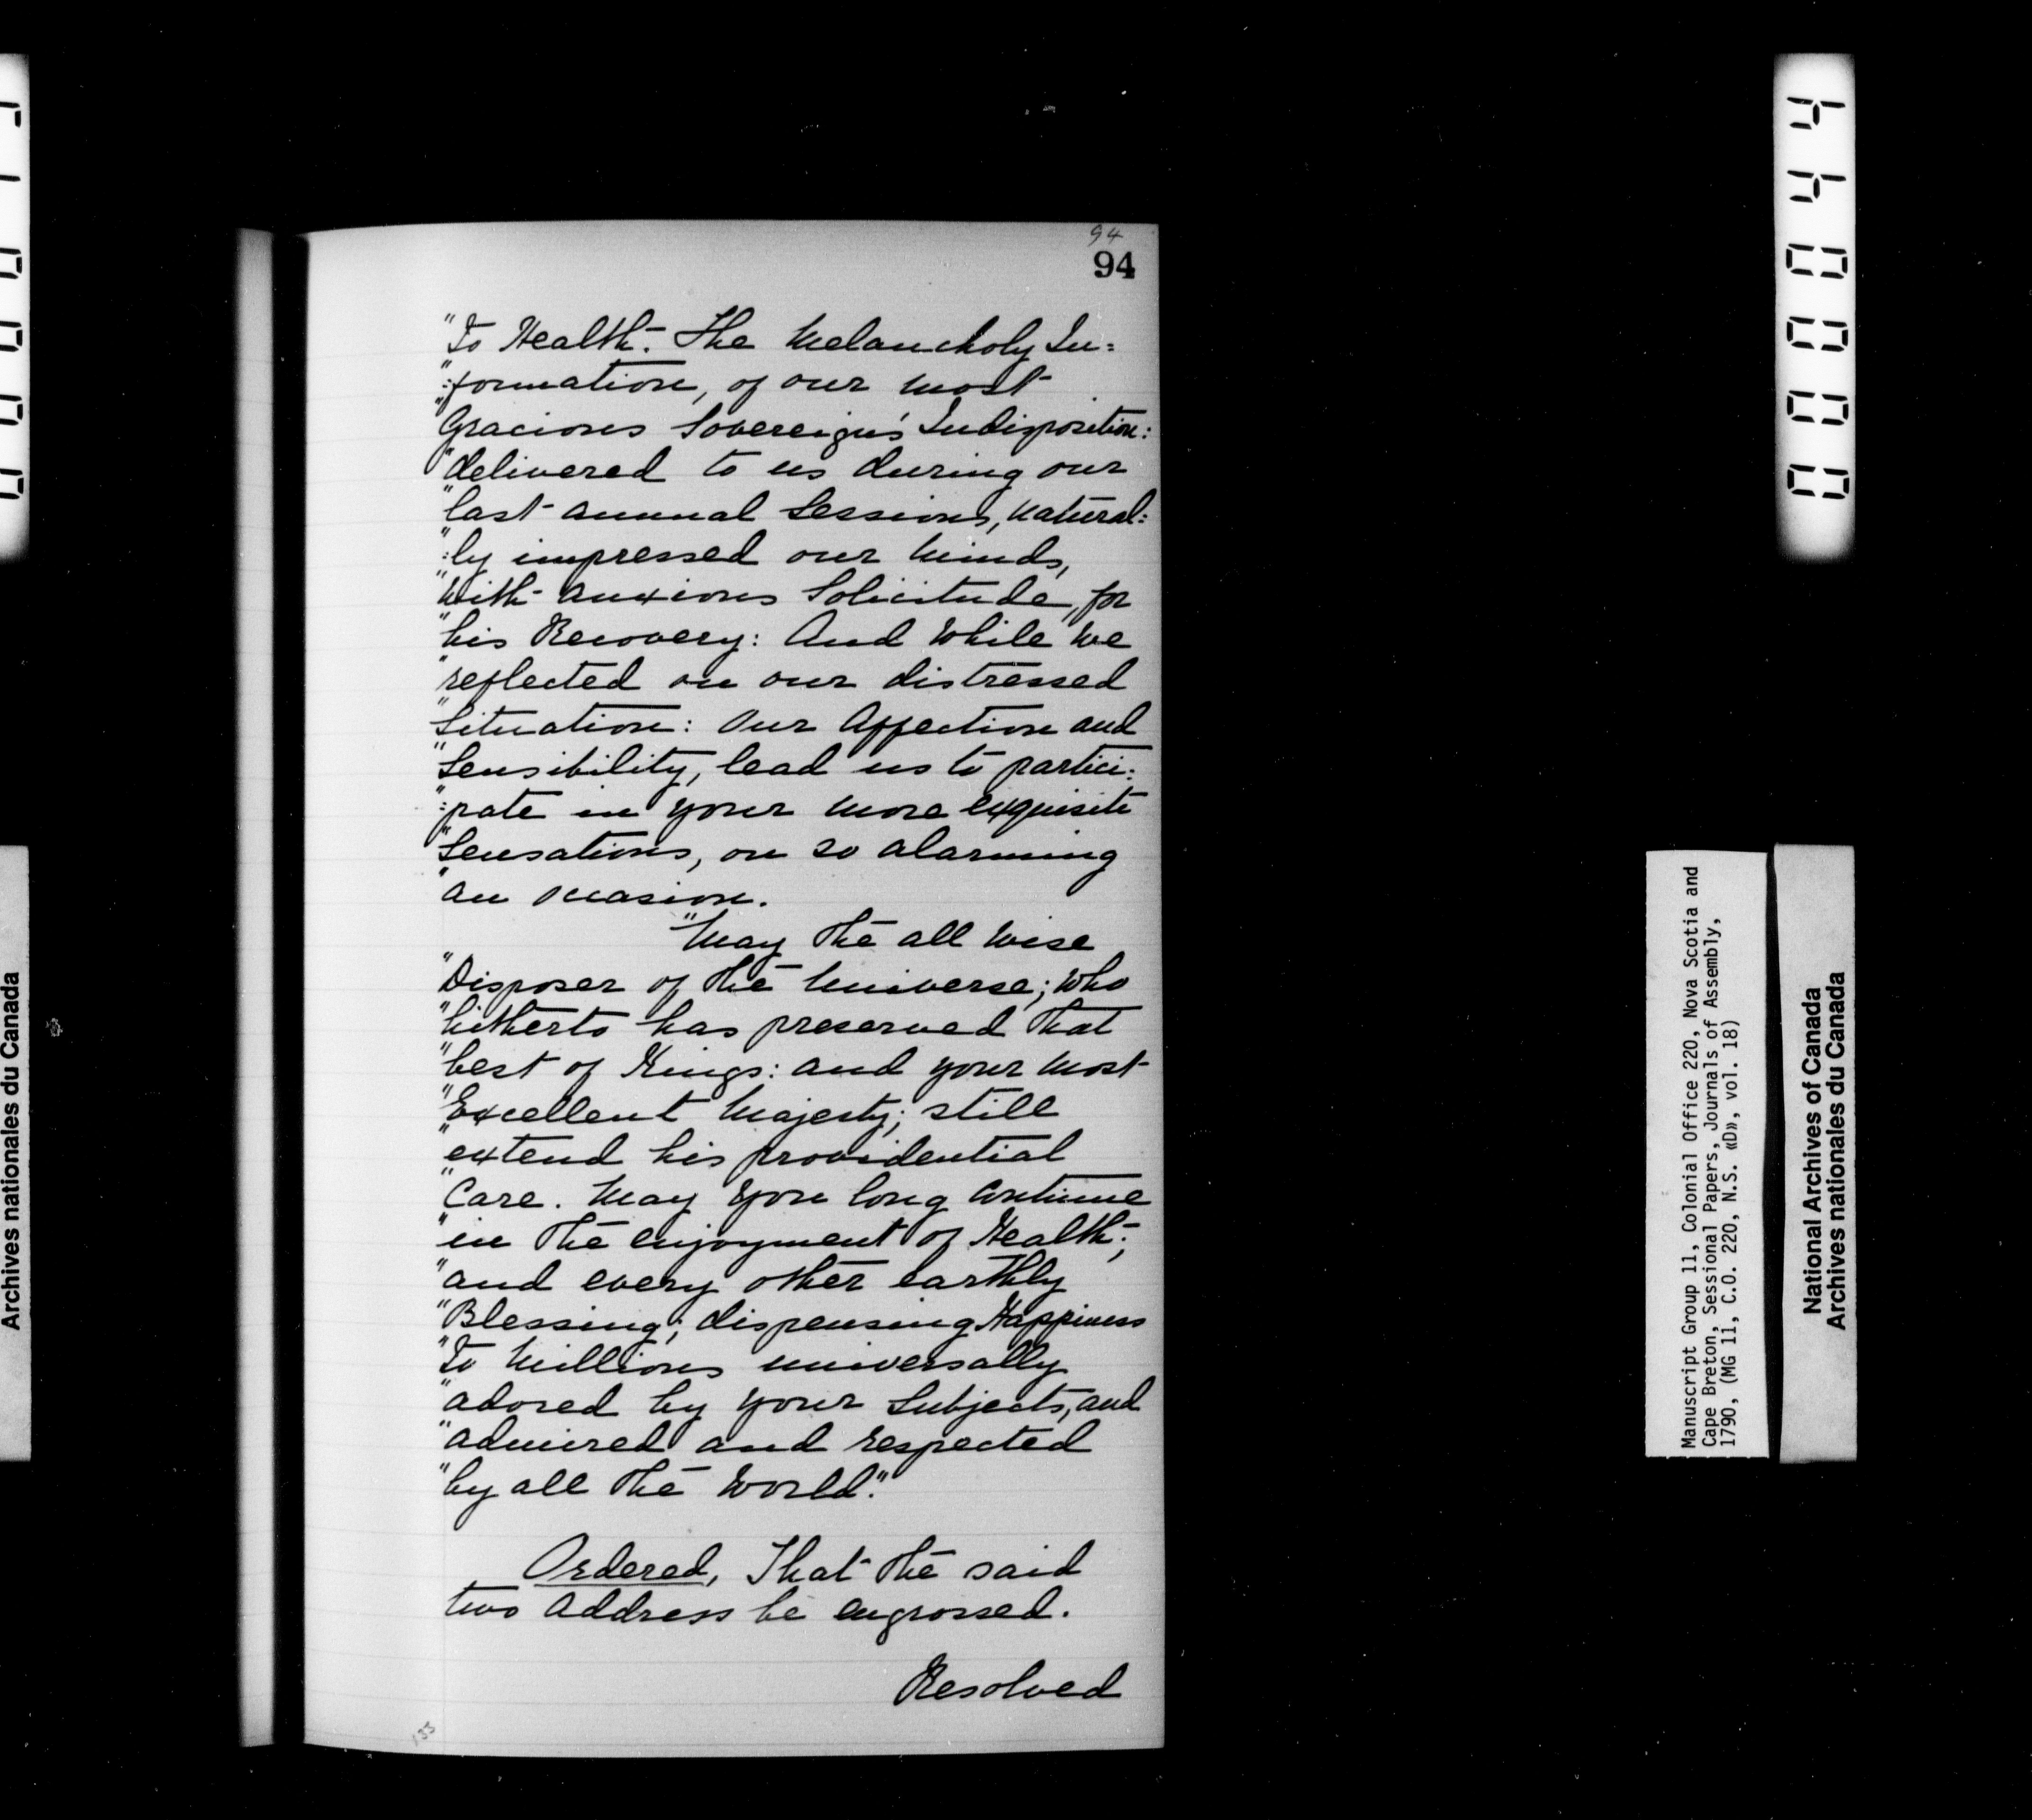 94
94
"To Health. The Melancholy In=
":formation, of our most
"Gracious Sovereign's Indisposition:
"delivered to us during our
"last annual Sessions, natural:
":ly impressed our Minds,
"with anxious Solicitude, for
"his Recovery: And While We
"reflected on our distressed
"Situation: Our Affection and
"Sensibility, lead us to partici:
":pate in your more exquisite
"Sensations, on so alarming
"an occasion.
"May the all Wise
"Disposer of the Universe; Who
"hitherto has preserved that
"best of Kings: and your Most
"Excellent Majesty; still
"extend his providential
"Care. May You long Continue
"in the enjoyment of Health;
"and every other earthly
"Blessing; dispensing Happiness
"To Millions universally
"adored by your Subjects, and
"admired and respected
"by all the World."
Ordered, That the said
two Address be engrossed.
Resolved
133
Archives nationales du Canada
440000
Manuscript Group 11, Colonial Office 220, Nova Scotia and
Cape Breton, Sessional Papers, Journals of Assembly,
1790, (MG 11, C.O. 220, N.S. «D», vol. 18)
National Archives of Canada
Archives nationales du Canada